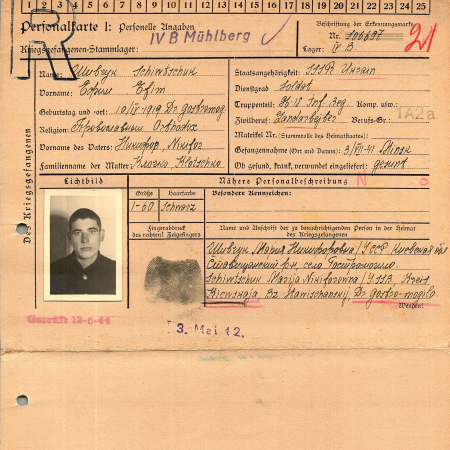 1 2 3 4 5 6 7 8 9 10 11 12 13 14 15 16 17 18 19 20 21 22 23 24 25
Personalkarte I: Personelle Angaben
Beschriftung der Erkennungsmarke
Kriegsgefangenen-Stammlager: IV B Mühlberg
Nr. 106697
Lager: IV B
21
R
Des Kriegsgefangenen
Name: Шивцук Schiwtschuk
Vorname: Ефим Efim
Geburtstag und -ort: 10/IV-1919
Religion: Православный Orthodox
Vorname des Vaters: Никифор, Nikifor
Familienname der Mutter: Klotschko
Staatsangehörigkeit: Ukrain
Dienstgrad: Soldat
Truppenteil: Inf. Reg. Komp. usw.:
Zivilberuf: Berufs-Gr.:
1A2a
Matrikel Nr. (Stammrolle des Heimatstaates):
Gefangennahme (Ort und Datum): 3/VII-41 Minsk
Ob gesund, krank, verwundet eingeliefert: gesund
Lichtbild
Nähere Personalbeschreibung
Größe
Haarfarbe
Besondere Kennzeichen:
1-60 Schwarz
Fingerabdruck
des rechten! Zeigefingers
Name und Anschrift der zu benachrichtigenden Person in der Heimat
des Kriegsgefangenen
Шивцук Мария Никифоровна / УССР Киевская обл
Ставищанский р-н, село
Schiwtschuk Marija Nikiforowna / USSR, Kreis
Kiewskaja, Bz. Stawischanskij,
Geprüft 12-6-44
3. Mai 42.